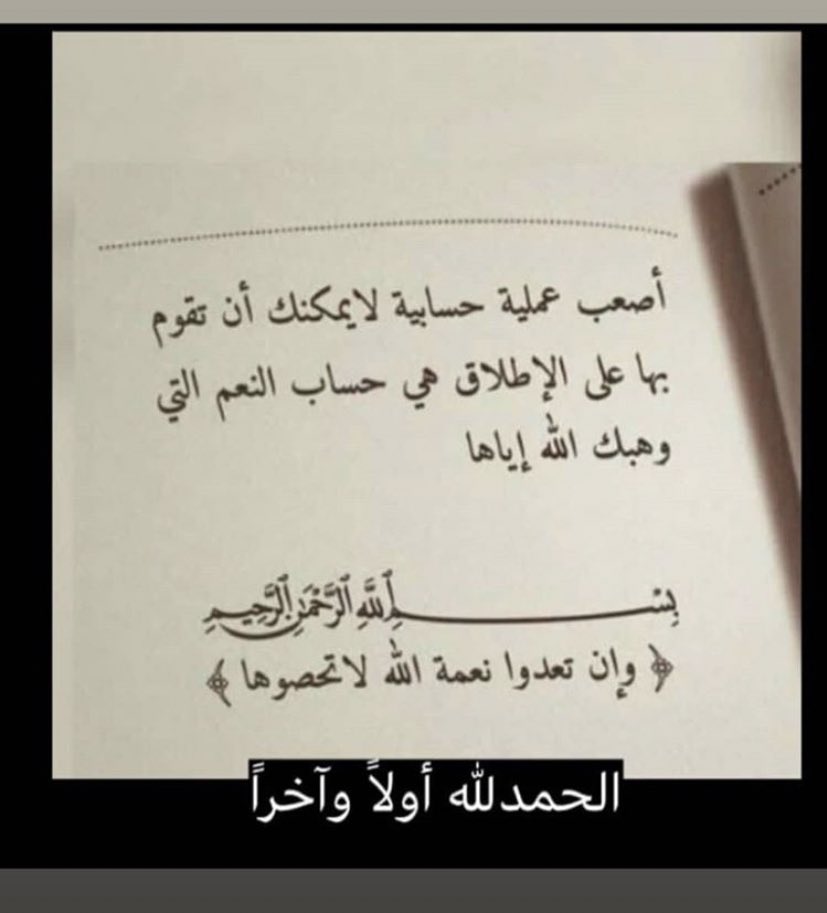 أصعب عملية حسابية لايمكنك أن تقوم
بها على الإطلاق هي حساب النعم التي
وهبك الله إياها
بِسْــــــمِ ٱللَّهِ ٱلرَّحْمَٰنِ ٱلرَّحِيمِ
﴿ وإن تعدوا نعمة الله لاتحصوها ﴾
الحمدلله أولاً وآخراً